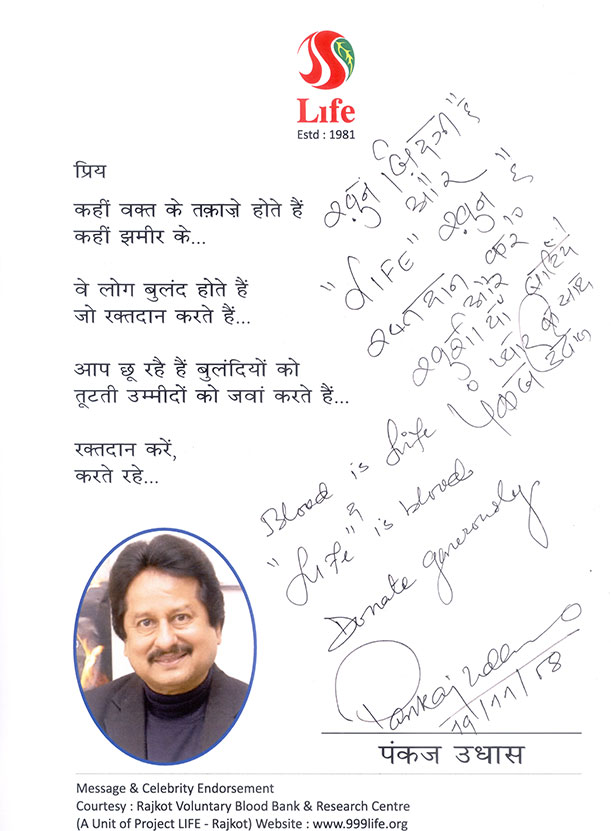 Life
Estd : 1981
प्रिय
कहीं वक्त के तक़ाज़े होते हैं
कहीं झमीर के...
वे लोग बुलंद होते हैं
जो रक्तदान करते हैं...
आप छू रहै हैं बुलंदियों को
तूटती उम्मीदों को जवां करते हैं...
रक्तदान करें,
करते रहे...
खुन ज़िंदगी" है
और "
"LIFE" खुन है
रक्तदान करे
और
खुशीयाँ बाटिये।
प्यार के साथ
पंकज उधास
Blood is Life
&
"Life" is blood
Donate generously
Pankaj Udhas
19/11/08
पंकज उधास
Message & Celebrity Endorsement
Courtesy : Rajkot Voluntary Blood Bank & Research Centre
(A Unit of Project LIFE - Rajkot) Website : www.999life.org